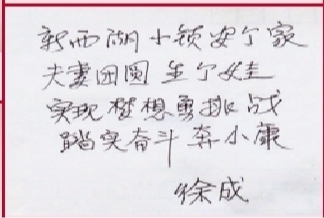 新西湖小镇安个家
夫妻团圆生个娃
实现梦想勇挑战
踏实奋斗奔小康
徐成